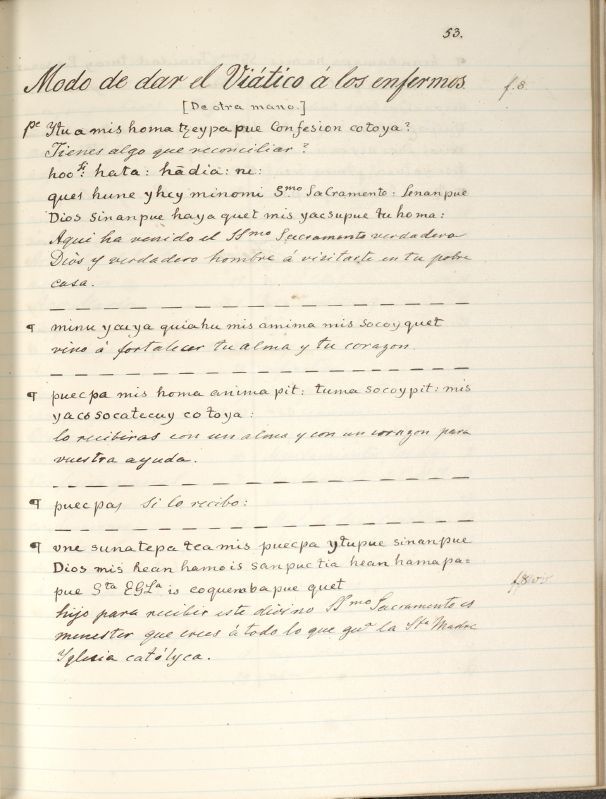 53.
Modo de dar el Viático á los enfermos. f. 8.
[De otra mano.]
pe Ytu a mis homa tzeypa pue Confesion cotoya?
Tienes algo que reconciliar?
hata: hādia: ne:
ques hune y hey minomi Smo Sacramento: Senan pue
Dios Sinanpue haya quet mis yacsupue tu homa:
Aqui ha venido el SSmo Sacramento verdadero
Diòs y verdadero hombre á visitarte en tu pobre
casa.
¶ minu ycuya quiahu mis amima mis socoy quet
vino á fortalecer tu alma y tu corazon
¶ puecpa mis homa anima pit: tuma socoy pit: mis
yaco socatecuy cotoya:
lo recibiras con un alma y con un corazon para
vuestra ayuda.
¶ puecpa, Si lo recibo:
¶ vne sunatepa tea mis puecpa ytu pue sinanpue
Dios mis hean hamo is san puctia hean hama pa=
pue Sta EGLa is coquenaba pue quet
hijo para recibir este divino SSmo Sacramento es
menester que crees á todo lo que la Sta Madre
Yglesia catolyca.